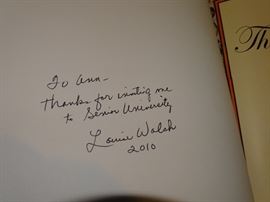 To Ann-
Thanks for inviting me
to Senior University
Louise Walsh
2010
Th